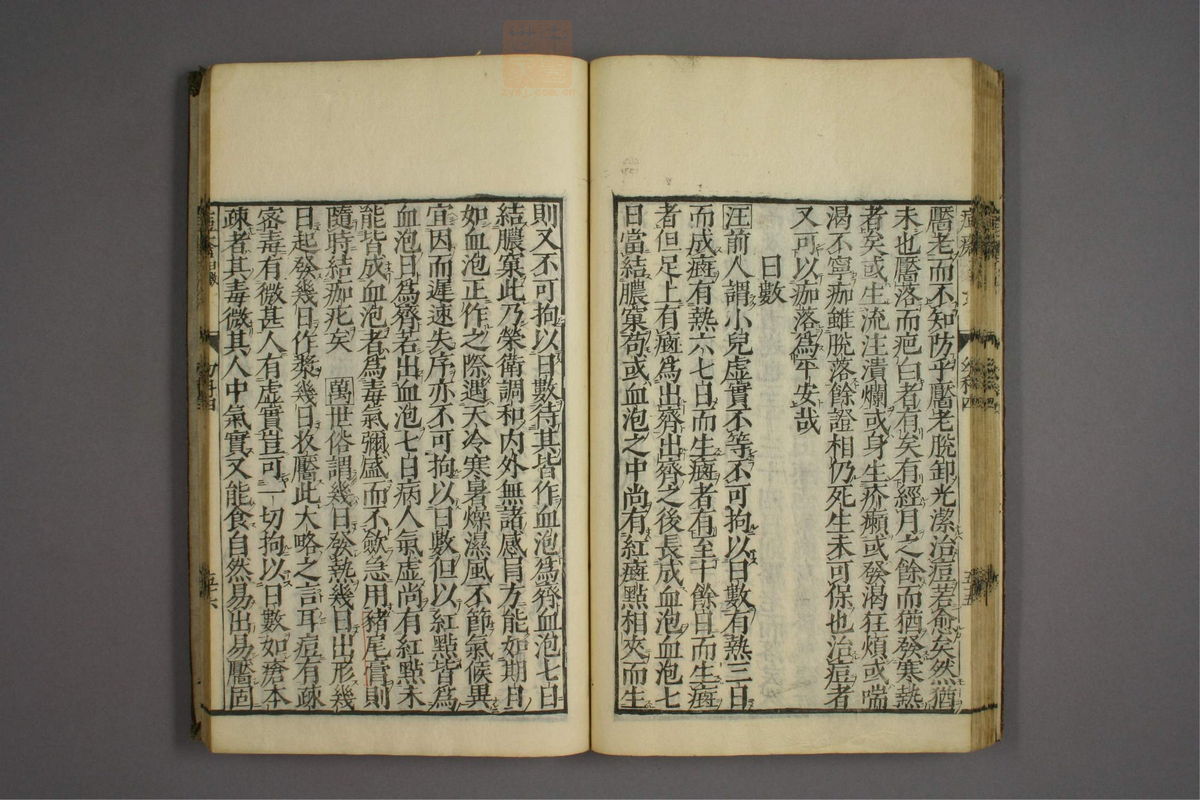 靨老而不知防乎靨老脫卸光潔治痘若愈矣然猶
未也靨落而疤白者有矣有經月之餘而猶發寒熱
者矣或生流注潰爛或身生疥癩或發渴狂煩或喘
渴不寧痂雖脫落餘證相仍死生未可保也治痘者
又可以痂落爲平安哉
日數
汪前人謂小兒虛實不等不可拘以日數有熱三日
而成𤻤有熱六七日而生𤻤者有至十餘日而生𤻤
者但足上有𤻤爲出齊出齊之後長成血泡血泡七
日當結膿窠苟或血泡之中尚有紅𤻤點相夾而生
則又不可拘以日數待其皆作血泡爲齊血泡七日
結膿窠此乃榮衛調和內外無諸感冐方能如期日
如血泡正作之際遇天冷寒暑燥濕風不節氣候異
宜因而遲速失序亦不可拘以日數但以紅點皆爲
血泡日爲齊若出血泡七日病人氣虛尚有紅點未
能皆成血泡者爲毒氣彌盛而不斂急用豬尾膏則
隨時結痂疕矣 萬世俗謂幾日發熱幾日出形幾
日起發幾日作漿幾日收靨此大略之言耳痘有疎
密毒有微甚人有虛實豈可一切拘以日數如瘡本
疎者其毒微其人中氣實又能食自然易出易靨固